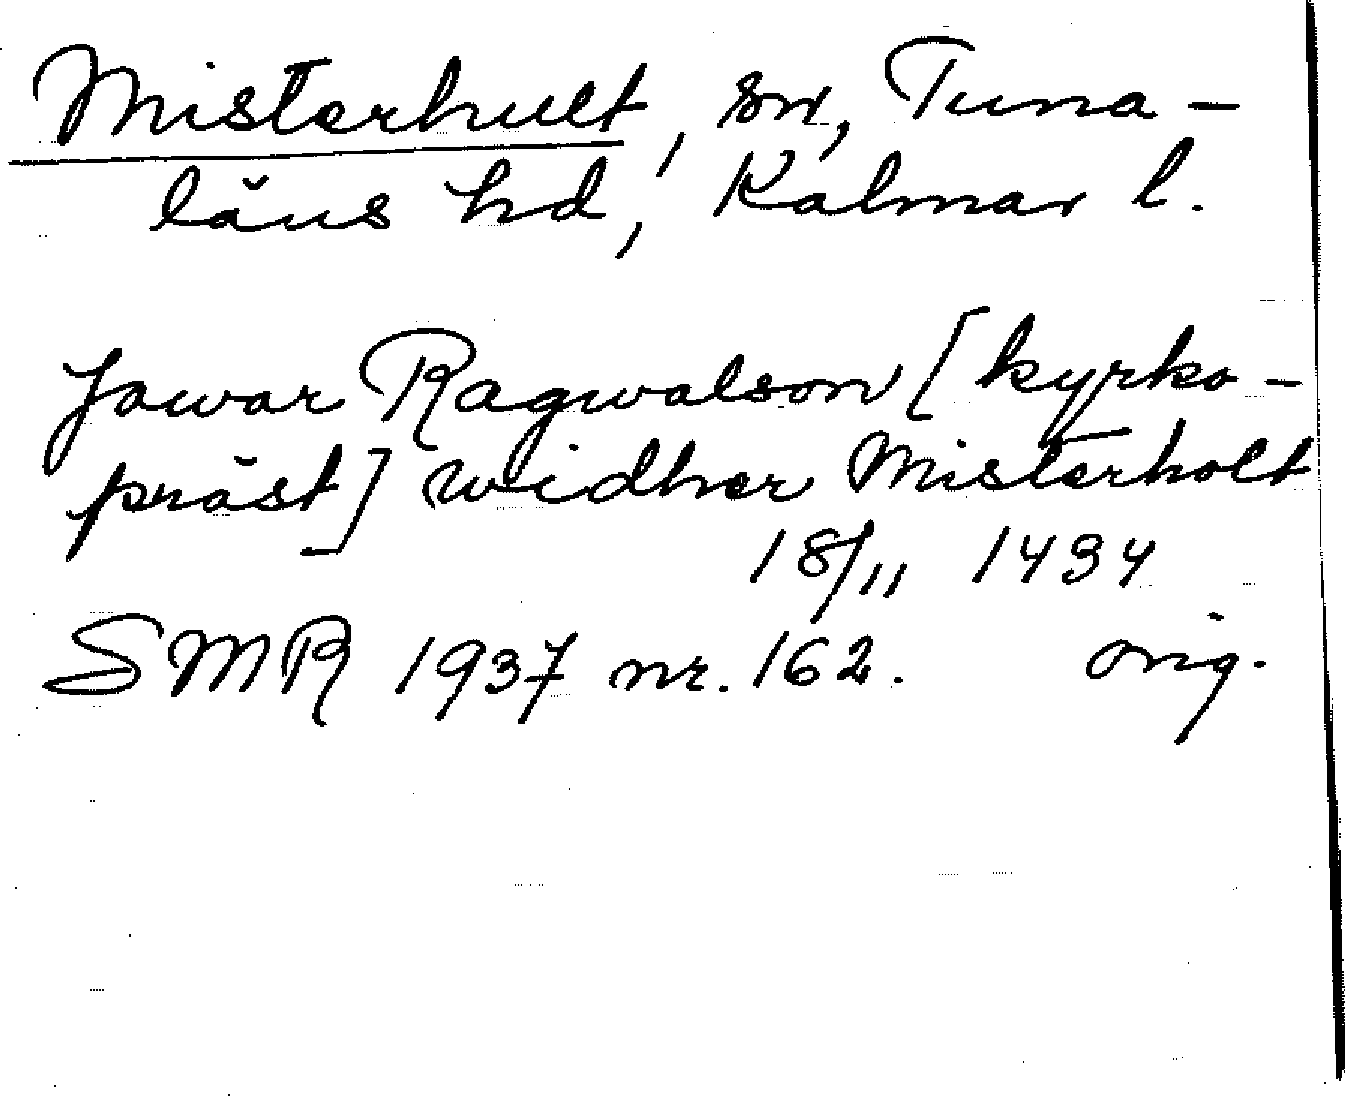 Misterhult, sn, Tuna-
läns hd, Kalmar l.
Jowar Ragwalson [kyrko-
präst] widher Misterholt
18/11 1434
SMR 1937 nr. 162. orig.